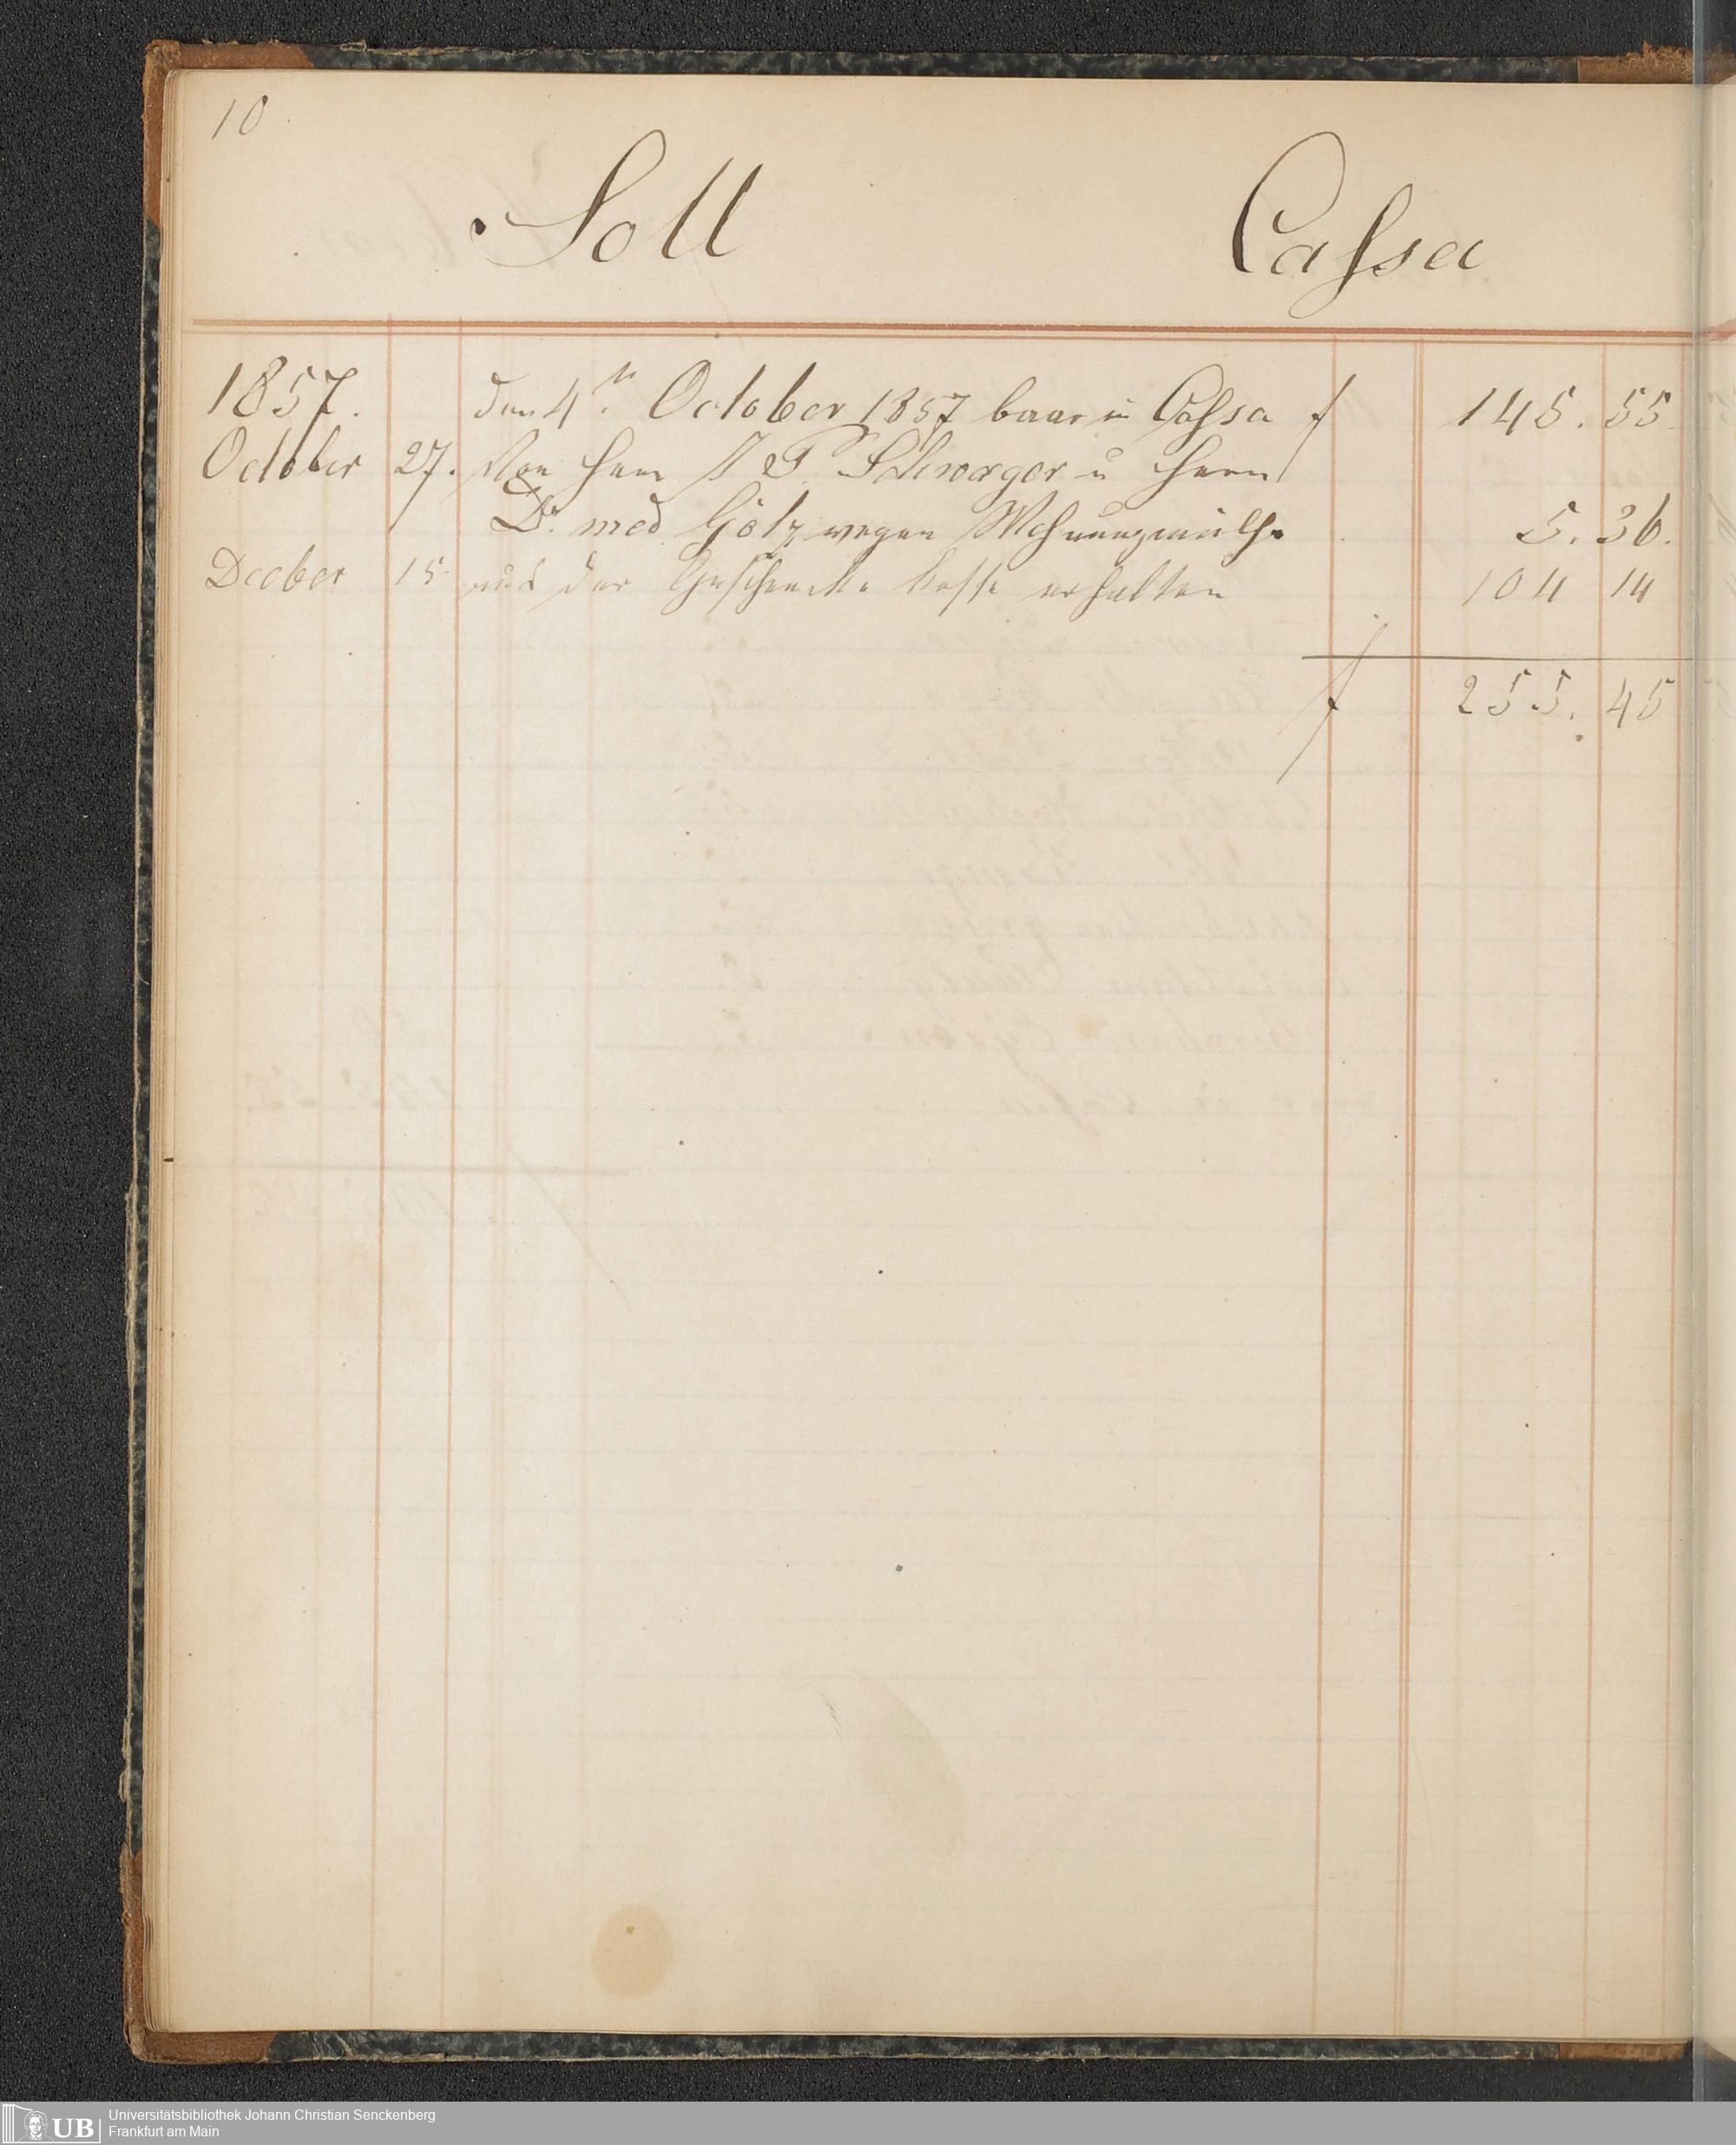 10.
Soll Cassa
1857. den 4n. October 1857 baar in Cassa f 145. 55.
October 27. Von Herrn I P. Schwager u Herrn
Dr. med Götz wegen 5. 36.
Decber 15. aus der Geschencke Kasse erhalten 104 14
f 255. 45
UB Universitätsbibliothek Johann Christian Senckenberg
Frankfurt am Main